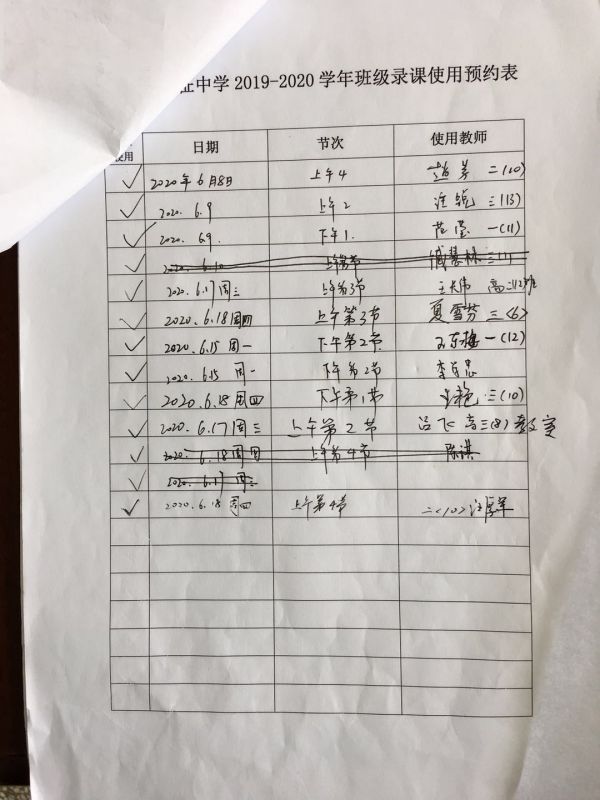 中学2019-2020学年班级录课使用预约表
使用 日期 节次 使用教师
2020年6月8日 上午4 二(10)
2020. 6.9 上午2 三(13)
2020. 6.9. 下午1. 范莹 一(11)
2020. 6.10
2020.6.17周三 上午第3节 王大伟 高二(12)班
2020.6.18周四 上午第3节 夏雪芬 三<6>
2020.6.15 周一 下午第2节 一(12)
2020.6.15 周一 下午第2节
2020.6.18周四 下午第1节 三(10)
2020.6.17周三 上午第2节 吕飞 高三(8)教室
2020. 6.18周四 上午第4节 陈谋
2020.6.17 周三
2020.6.18 周四 上午第4节 二<10>